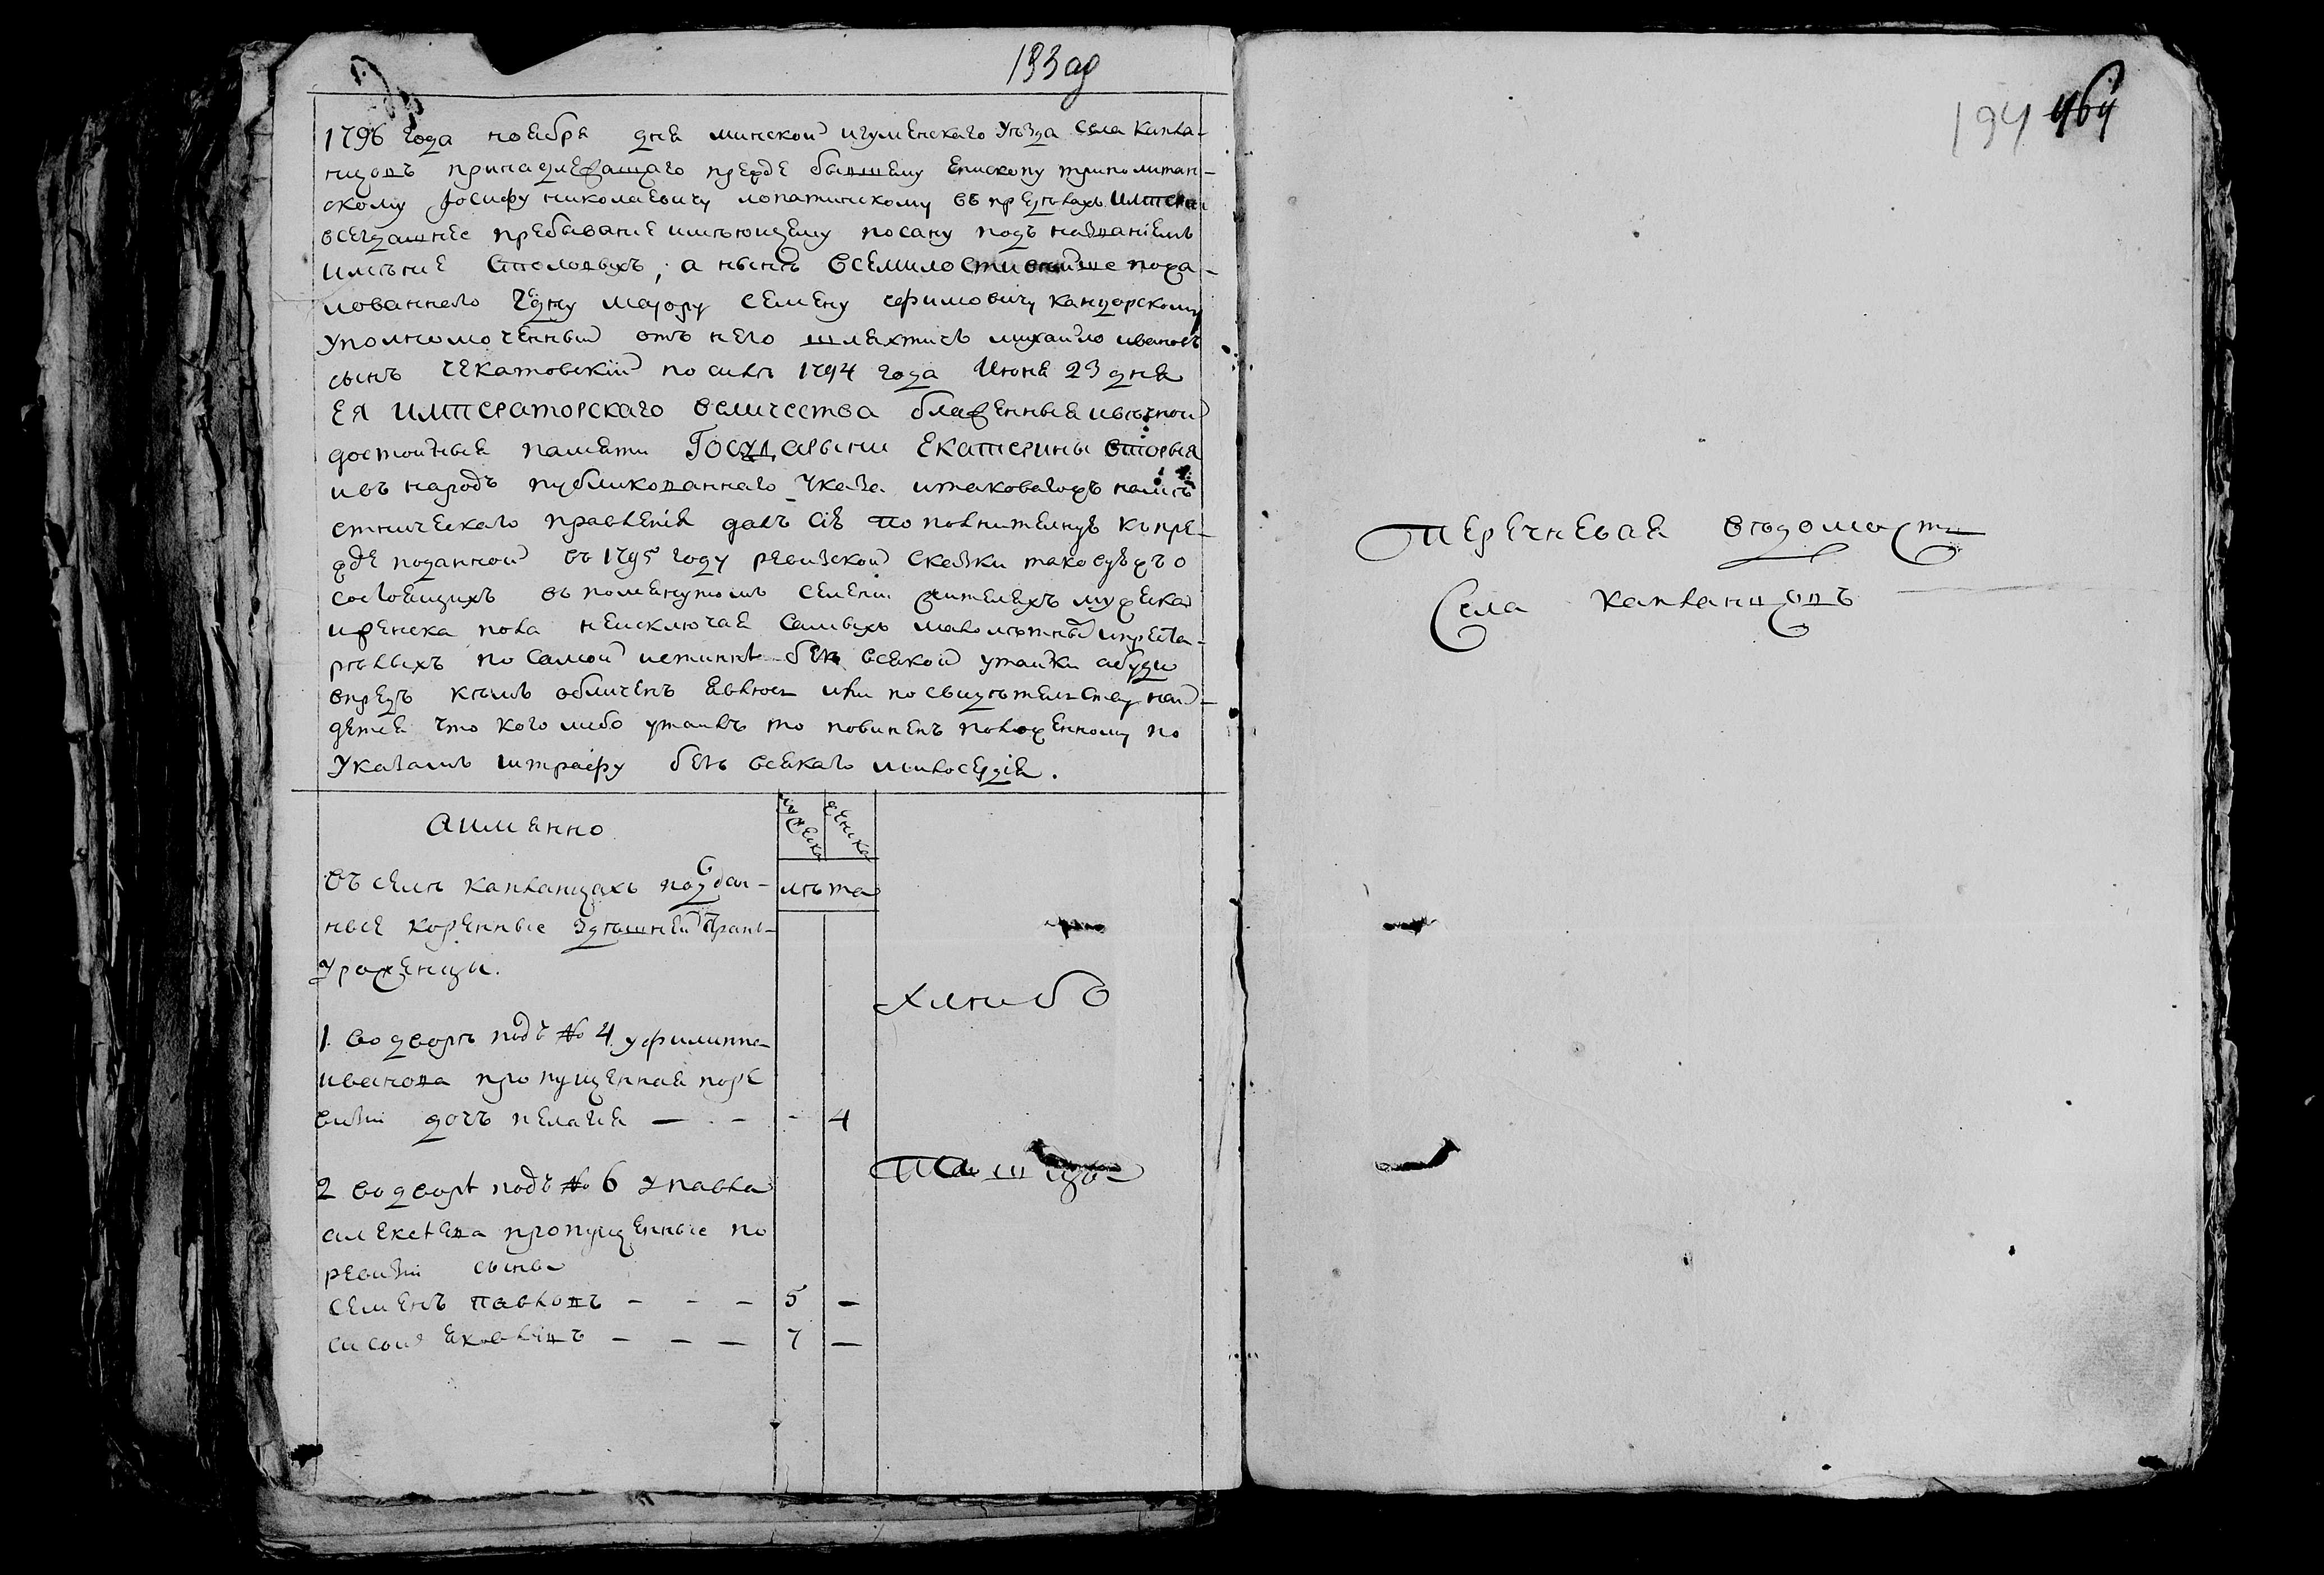 193 об
1796 года ноября дня минской игуменскаго уѣзда села Каплан-
цовъ принадлежащаго прежде бывшему Епископу триполитан-
скому Іосифу николаевичу лопатинскому въ предѣлахъ Имперіи
всегдашнее пребываніе имѣющему по сану подъ названіемъ
имѣние Столовыхъ, а нынѣ всемилостивѣйше пожа-
лованнаго Гдну маіору семену ефимовичу канцерскому
уполномоченный отъ него шляхтичъ михайло ивановъ
сынъ чекатовскій по силѣ 1794 года Июня 23 дня
ея императорскаго величества блаженныя и вѣчной
достойныя памяти Государыни Екатерины вторыя
и въ народъ публикованнаго указа и таковагожъ намѣ-
стническаго правленія далъ сіѣ пополнительнуѣ къ пре-
жде поданной въ 1795 году ревизской сказки таковуѣжъ о
состоящихъ въ помянутомъ селеніи жителяхъ мужеска
и женска пола неисключая самыхъ малолѣтный и преста-
рѣлыхъ по самой истиннѣ безъ всякой утайки а буди
впредь кѣмъ обличенъ явлюсь или по свидѣтельству най-
детея что кого либо утаилъ то повиненъ положенному по
указамъ штрафу безъ всякаго милосердія.
а именно
мужеска
женска
въ селѣ капланцахъ поддан-
ные коренные здѣшней страны
уроженцы.
лѣта
1. во дворѣ подъ № 4 у филиппа
иванова пропущенная по ре
визіи дочь пелагея — . – - 4
2 во дворѣ подъ № 6 у павла
алексѣева пропущенные по
ревизіи сыны
семенъ павловъ – – – 5 –
сисой яковлевъ – – – 7 –
194 464
Перечневая вѣдомость
Села капланцовъ